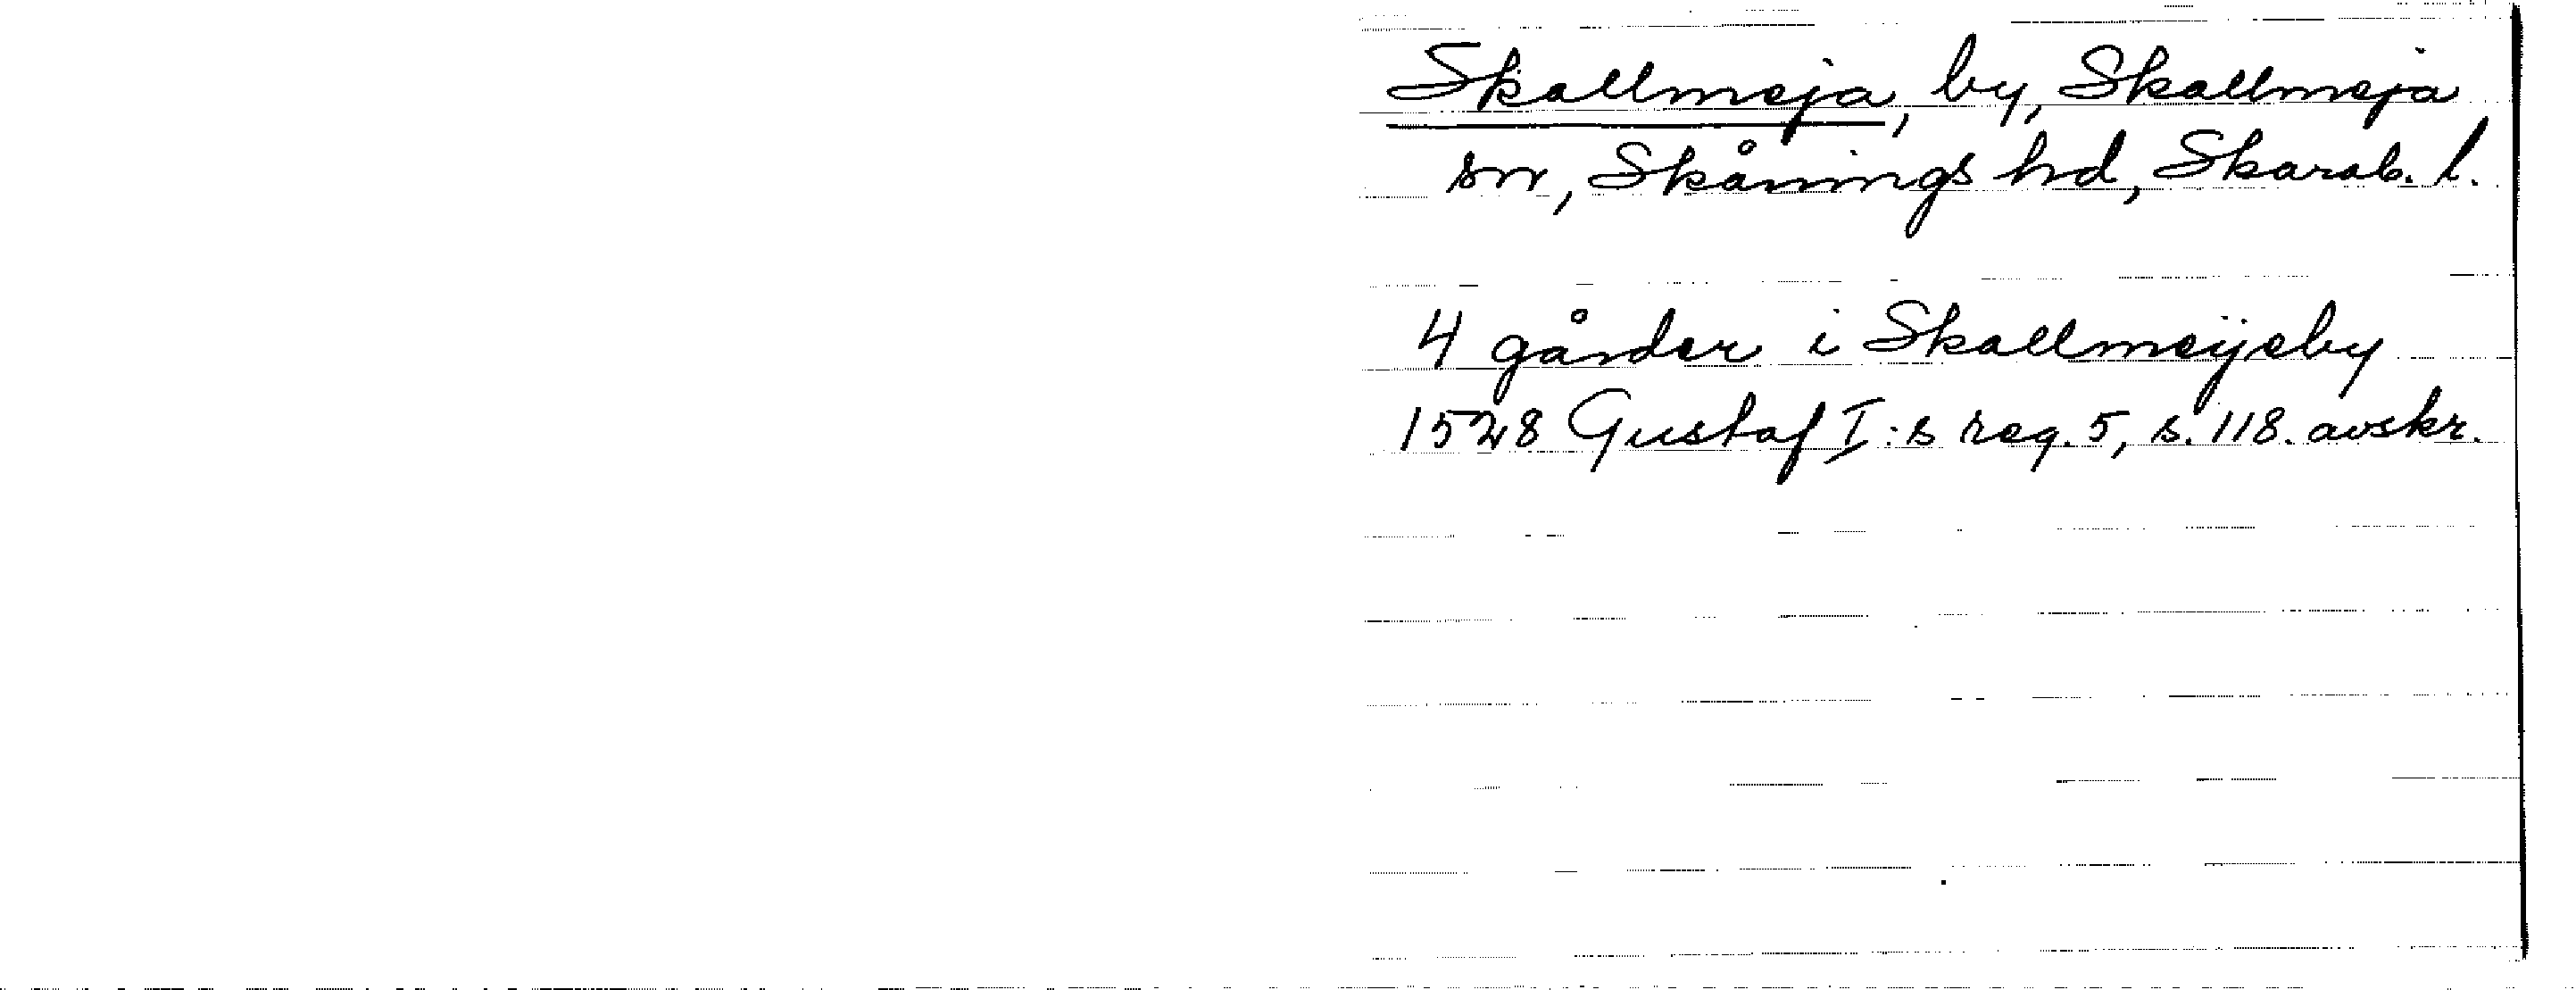 Skallmeja, by, Skallmeja
sn, Skånings hd, Skarab. l.
4 gårder i Skallmeijeby
1528 Gustaf I:s reg. 5, s. 118. avskr.